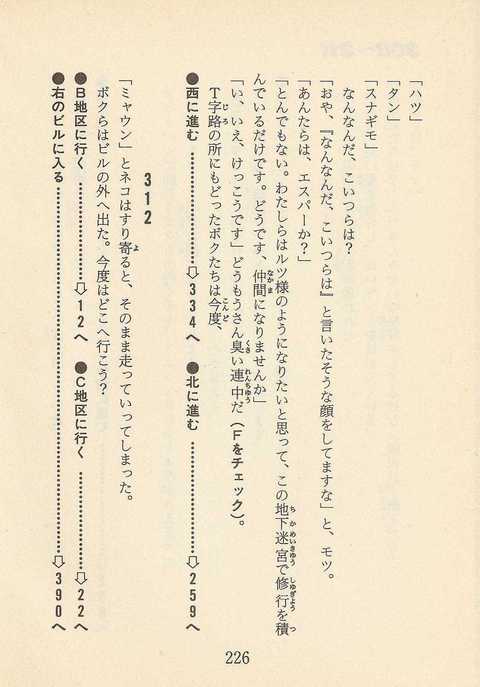 「ハツ」
「タン」
「スナギモ」
なんなんだ、こいつらは？
「おや、『なんなんだ、こいつらは』と言いたそうな顔をしてますな」と、モツ。
「あんたらは、エスパーか？」
「とんでもない。わたしらはルツ様のようになりたいと思って、この地下迷宮で修行を積
んでいるだけです。どうです、仲間になりませんか」
「い、いえ、けっこうです」どうもうさん臭い連中だ（Fをチェック）。
T字路の所にもどったボクたちは今度、
●西に進む……………⇨334へ　●北に進む……………⇨259へ
312
「ミャウン」とネコはすり寄ると、そのまま走っていってしまった。
ボクらはビルの外へ出た。今度はどこへ行こう？
●B地区に行く……………⇨12へ　●C地区に行く……………⇨22へ
●右のビルに入る……………………………………⇨390へ
226